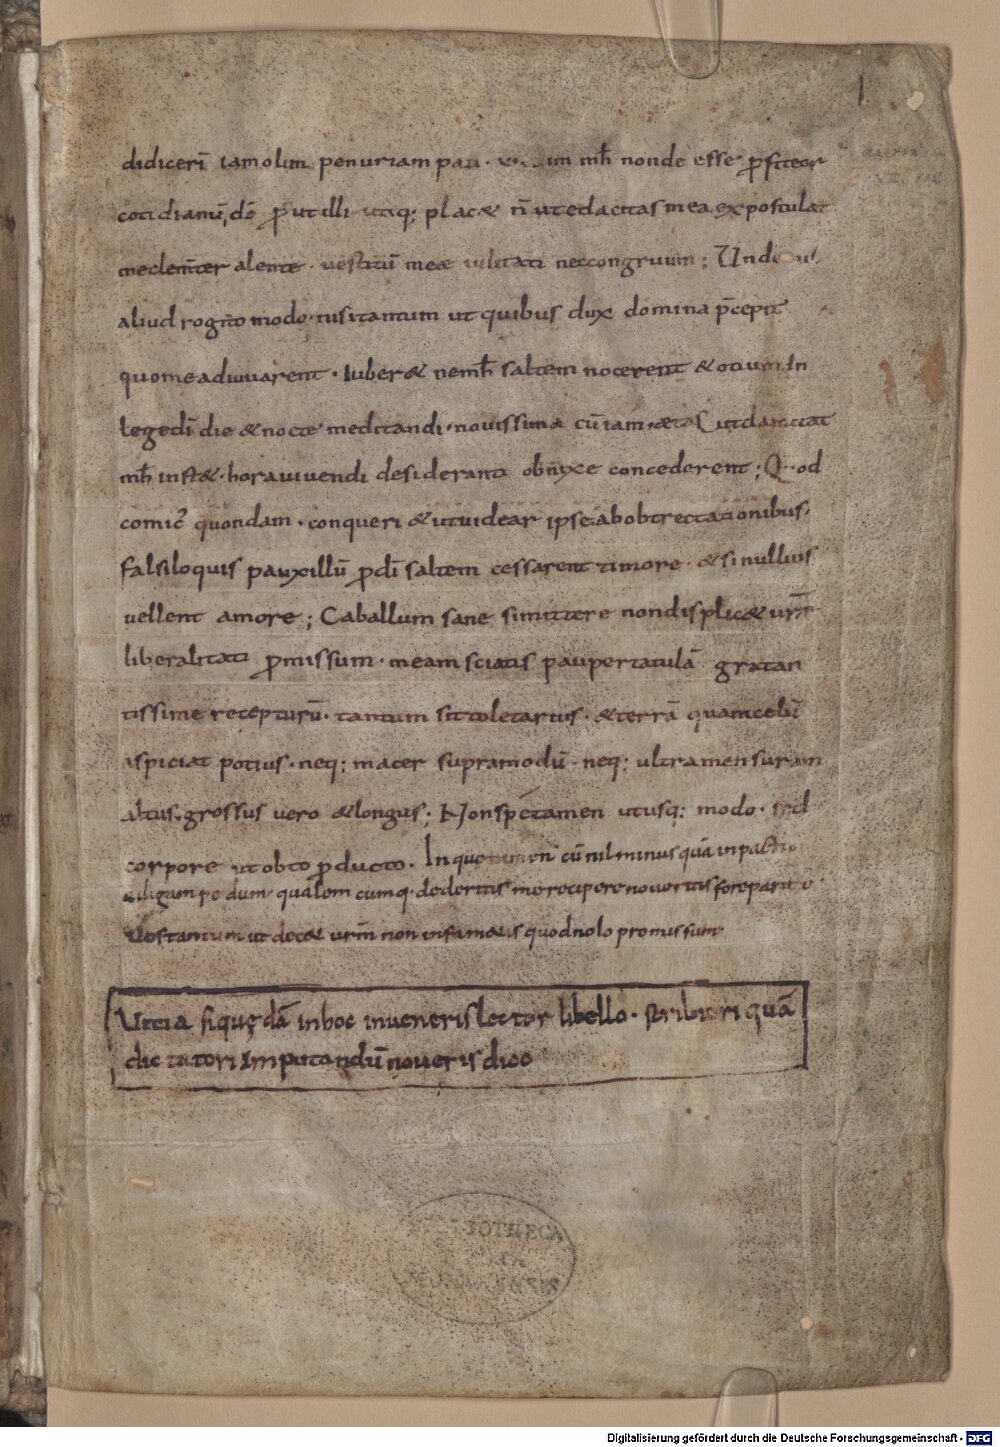 1
didicerī iam olim penuriam pati · mħ non de esse ꝓfiteor
cotidianū, dō ꝓut illi utiq; placꝫ n̄ ut edacitas mea expostulat
me clem̄ter alente · uestitū meae uilitati nec congruum; Unde
aliud rogito modo · nisi tantum ut quibus dux domina p̄cepit
quo me adiuuarent · iuberꝫ ne mħ saltem nocerent & otium In
legēdi die & nocte meditandi · nouissima cū iam ætas
mħ instꝫ · hora uiuendi desideranti obnixe concederent; Quod
comic᾽ quondam · conqueri & ut uidear ipse ab obtrectationibus ·
falsiloquis pauxillū ꝓ dī saltem cessarent timore · & si nullius
uellent amore; Caballum sane si mittere non displicꝫ ur̄ae
liberalitati ꝓmissum · meam sciatis paupertatulā gratan
tissime recepturū · tantum sit toletarius · & terrā quam cęlū
aspiciat potius · neq; macer supra modū · neq; ultra mensuram
altus, grossus vero & longus; Non spe tamen utusq; modo · sed
corpore ut obto ꝓducto · In quo tamen cū nil minus quā in pactio
diligam pedum · qualem cumq· dederitis me recipere noueritis fore paratū
uos tantum ut decꝫ urm̄ non infametis quod nolo promissum
Uitia si quędā in hoc inueneris lector libello · scribturi quā
dictatori Imputandū noueris dico
BIBLIOTHECA
MONACENSIS
Digitalisierung gefördert durch die Deutsche Forschungsgemeinschaft - DFG